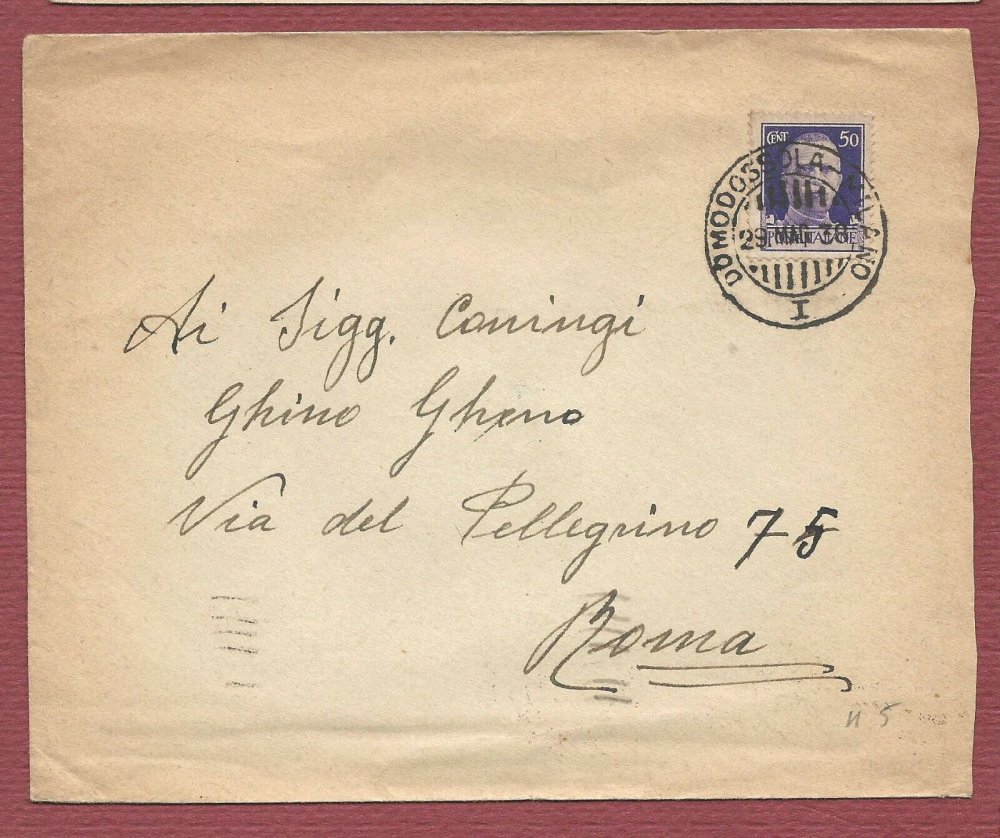 CENT 50
POSTE ITALIANE
DOMODOSSOLA-MILANO
29 MAG 38
I
Ai Sigg. Coningi
Ghino Gheno
Via del Pellegrino 75
Roma
n 5